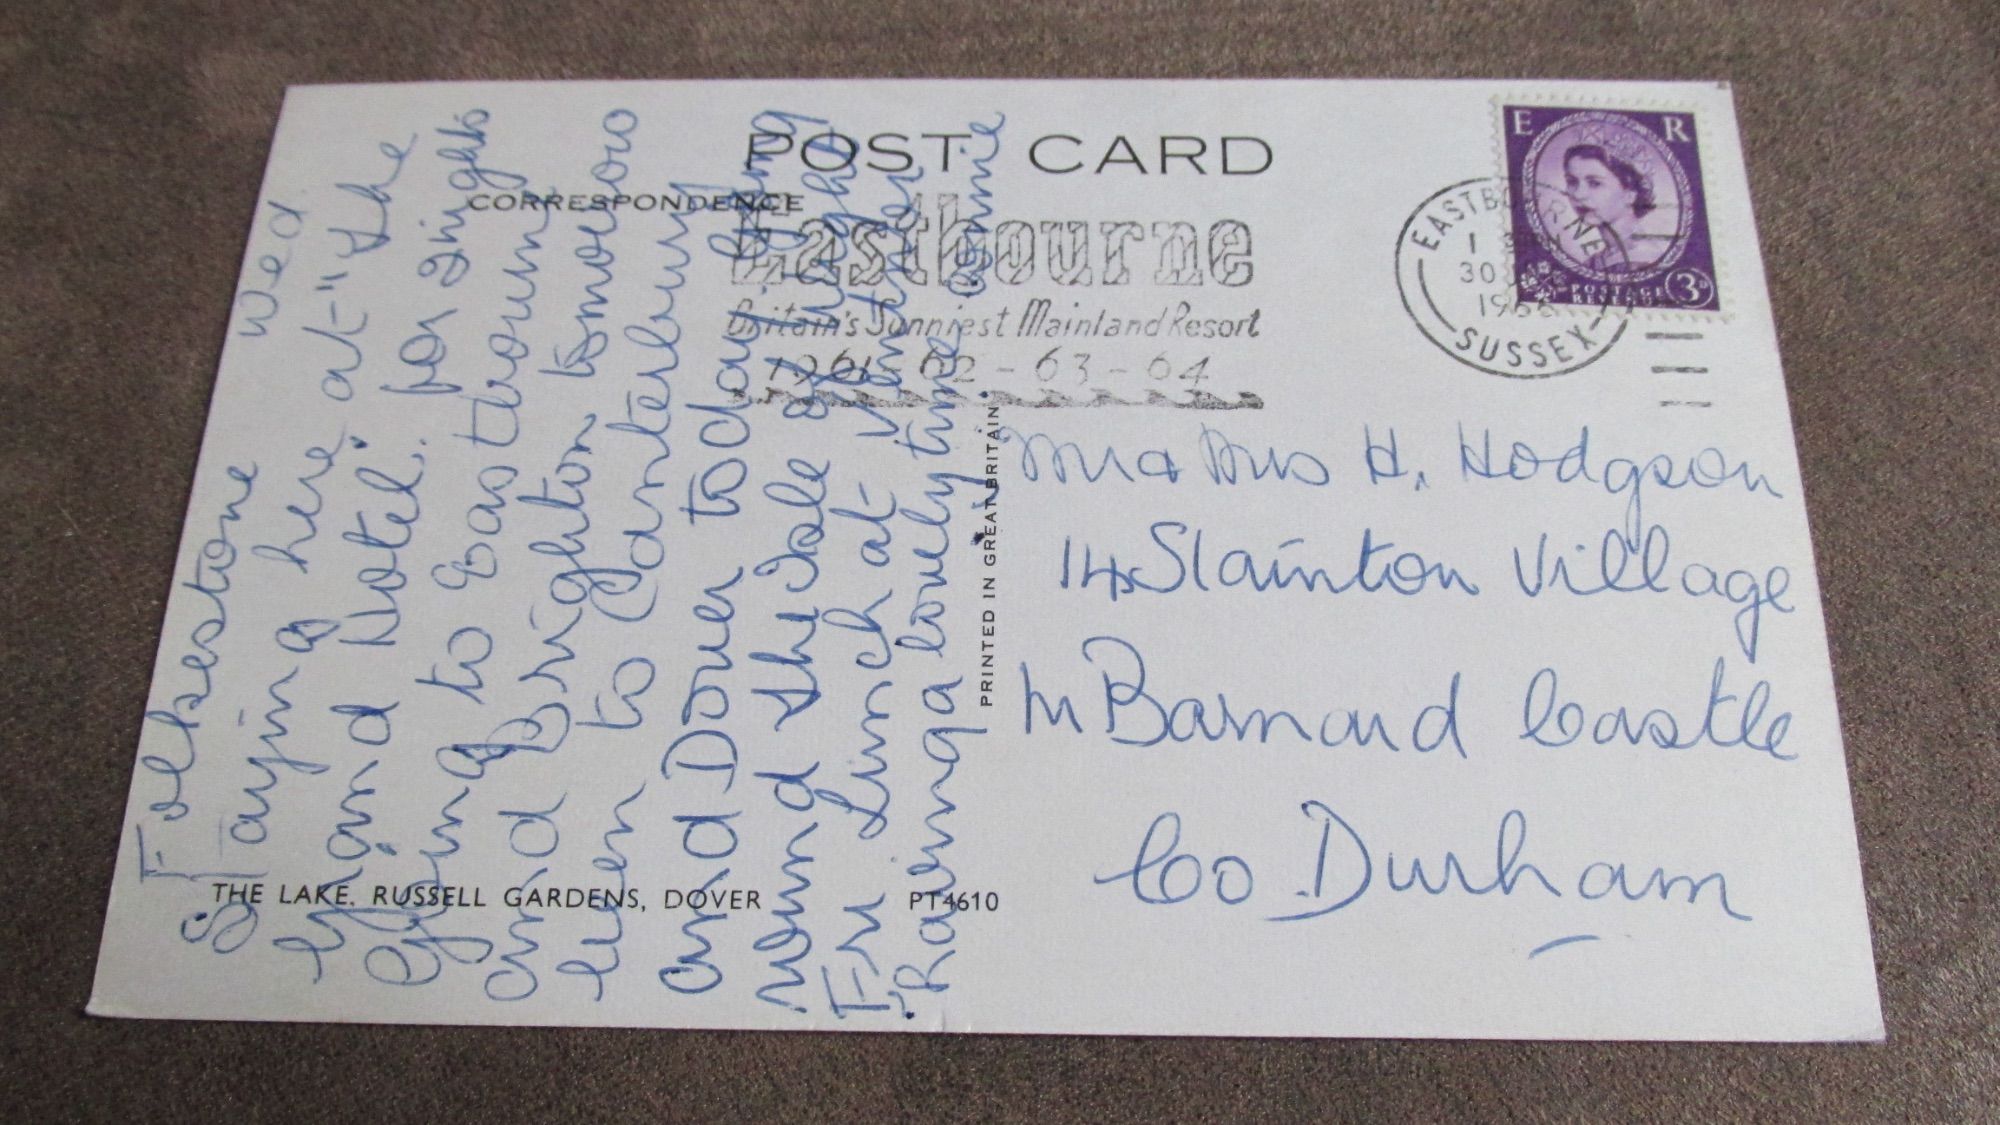 POST CARD
CORRESPONDENCE
Eastbourne
Britain's Sunniest Mainland Resort
1961-62-63-64
E R
POSTAGE
REVENUE
3D
EASTBOURNE
1
30
196
SUSSEX
Folkestone Wed
Staying here at "the
Grand Hotel". for 3 nights
Going to Eastbourne
and Brighton tomorrow
been to Canterbury
and Dover today. going
round the Isle of Wight
Fri Lunch at Ventner
Having a lovely time. Annie
PRINTED IN GREAT BRITAIN.
Mr & Mrs H. Hodgson
14 Stainton Village
Nr Barnard Castle
Co Durham
THE LAKE, RUSSELL GARDENS, DOVER PT4610